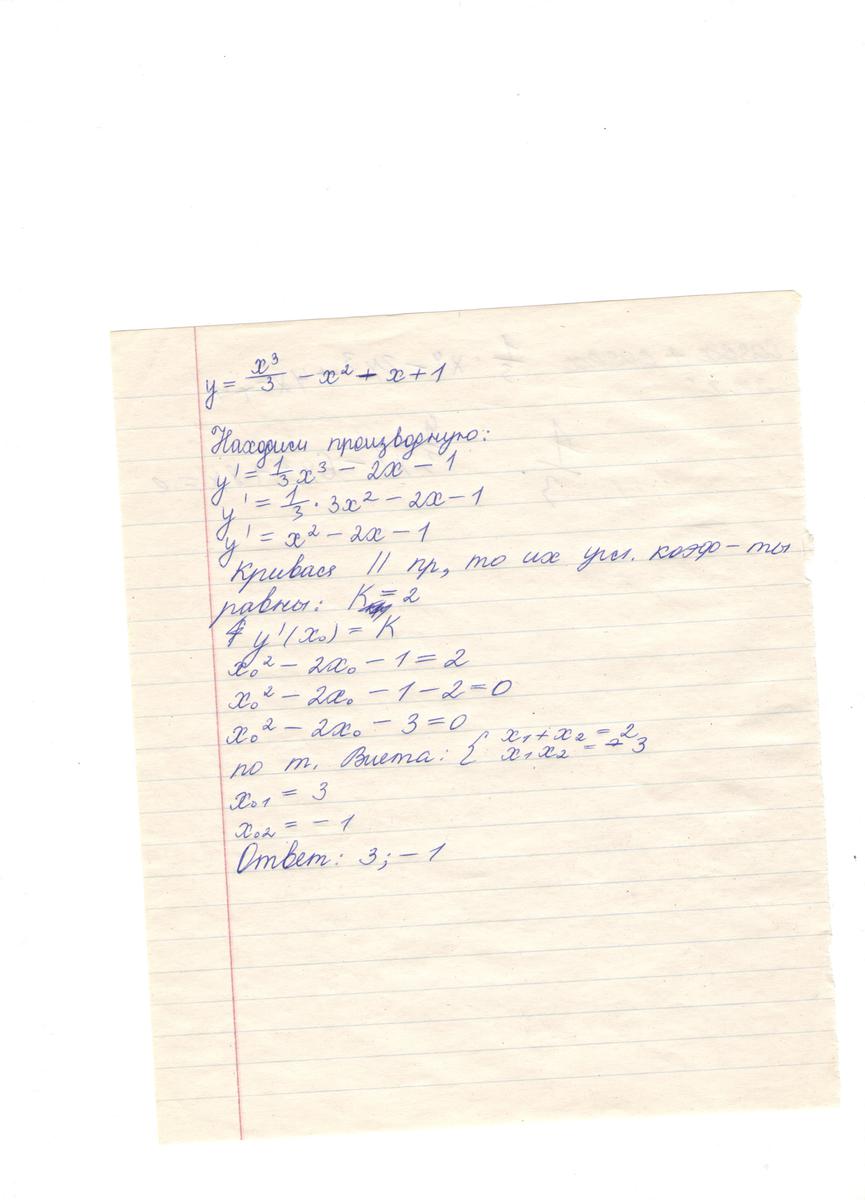 y = x³/3 − x² − x + 1
Находим производную:
y' = 1/3 x³ − 2x − 1
y' = 1/3 · 3x² − 2x − 1
y' = x² − 2x − 1
Кривая || пр, то их угл. коэф-ты
равны: K = 2
y'(x₀) = K
x₀² − 2x₀ − 1 = 2
x₀² − 2x₀ − 1 − 2 = 0
x₀² − 2x₀ − 3 = 0
по т. Виета: { x₁ + x₂ = 2
x₁ x₂ = −3
x₀₁ = 3
x₀₂ = − 1
Ответ: 3; − 1